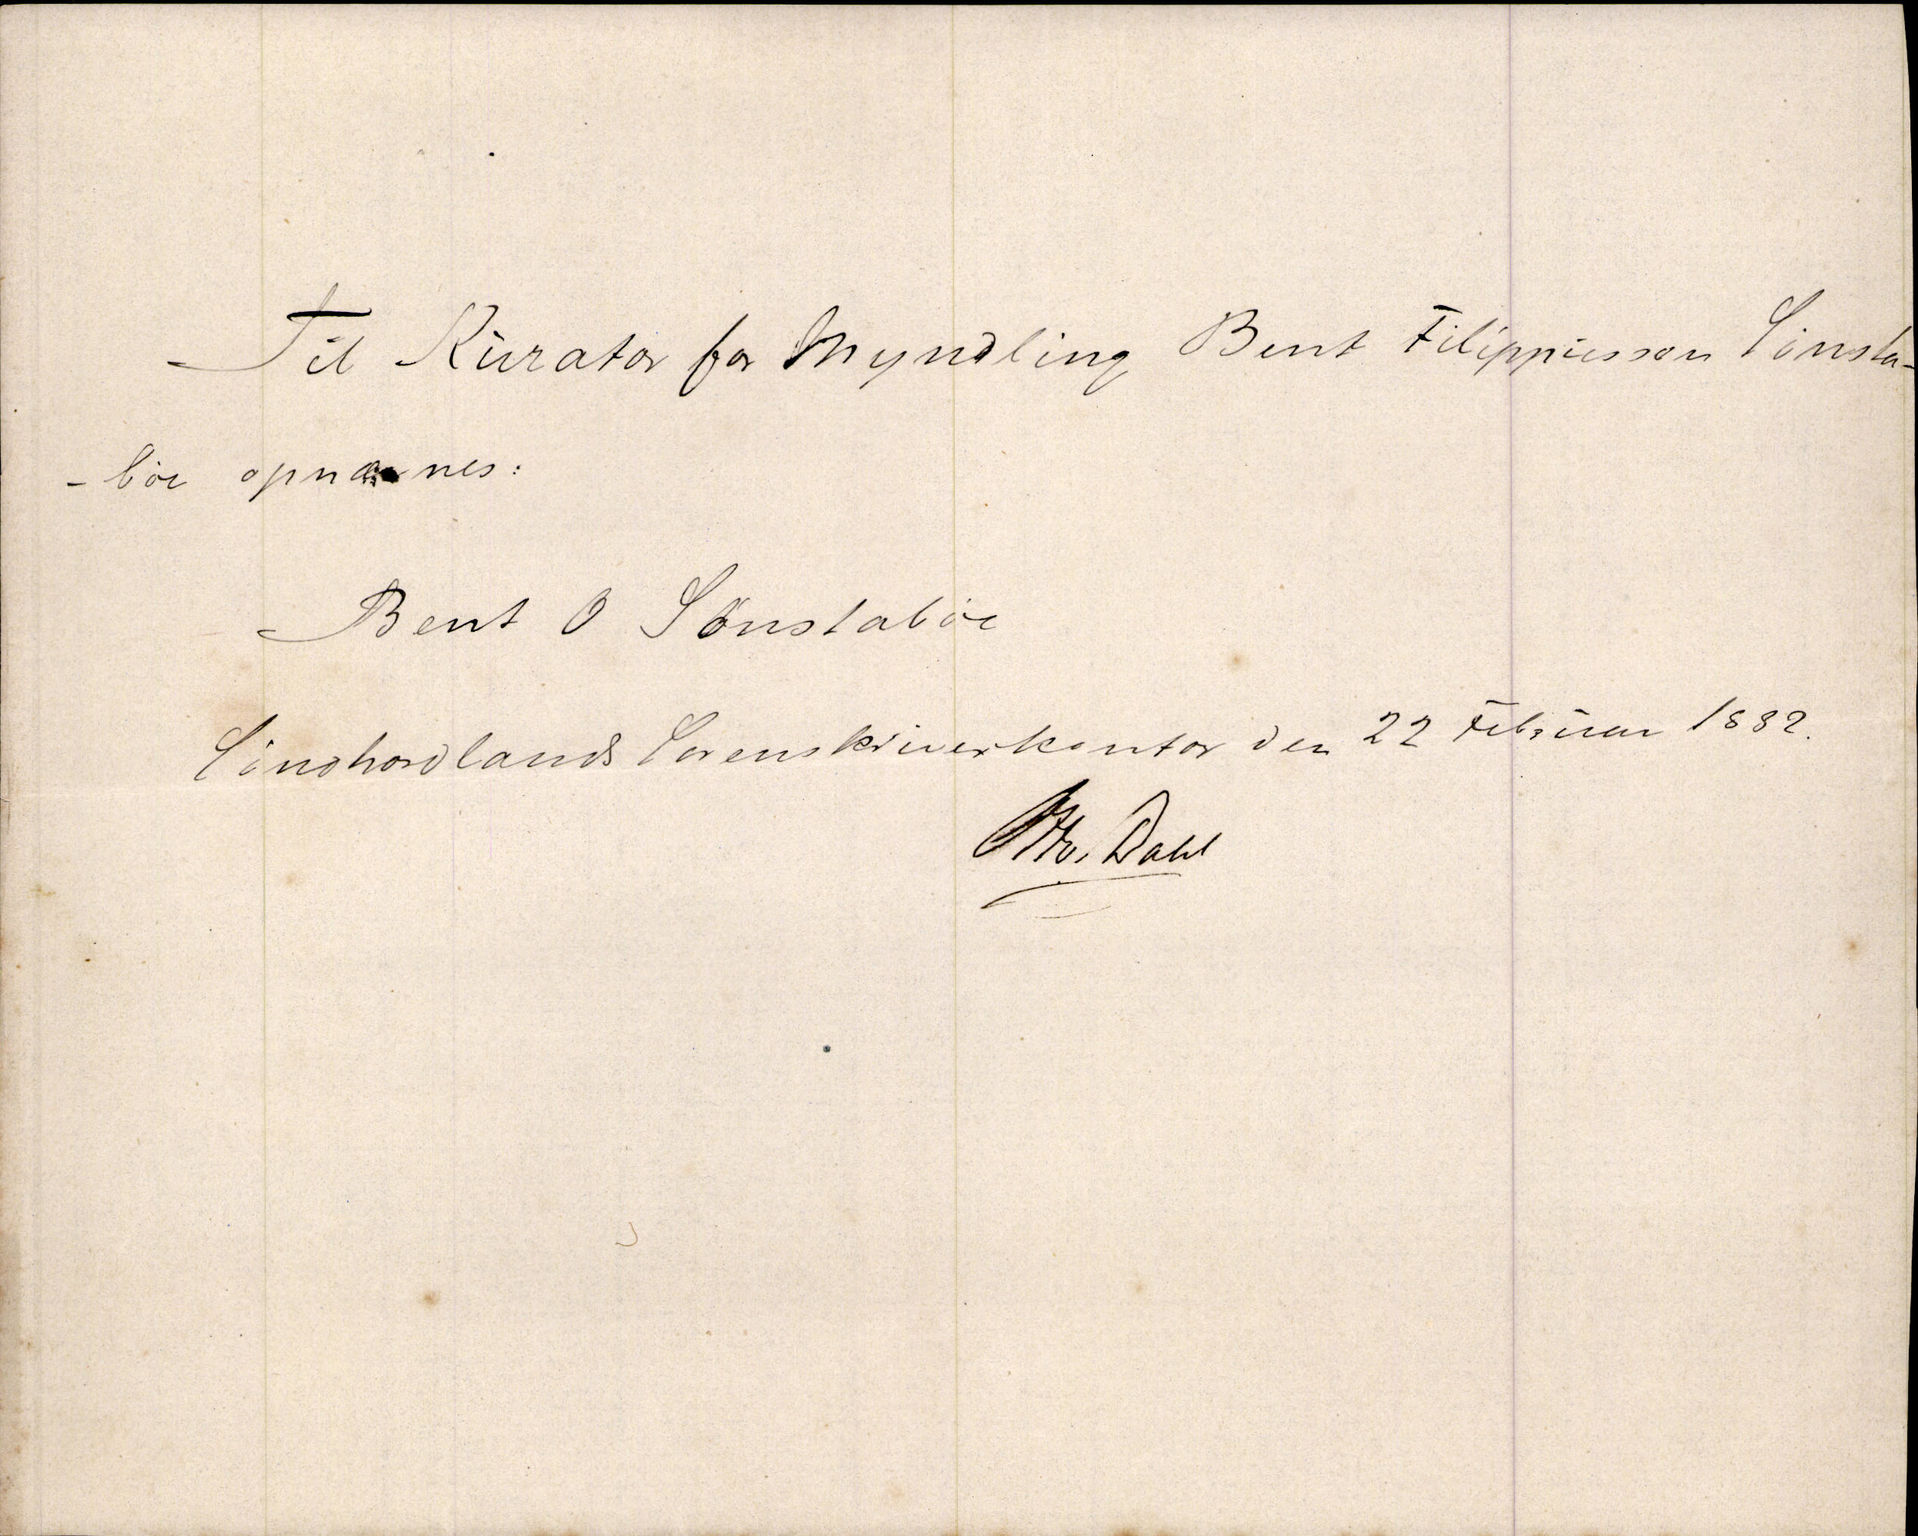 Til Kurator for Myndling Bent Filippusson Sönsta-
-böe opnævnes:
Bent O Sönstaböe
Söndhordlands Sorenskriverkontor den 22 Februar 1882.
Dahl